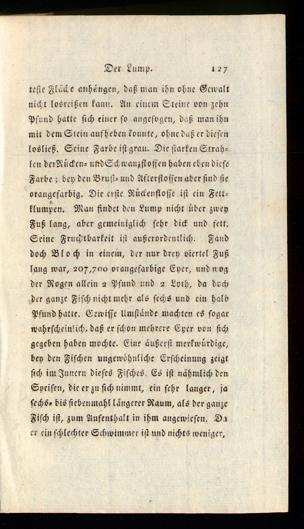 Der Lump. 127
teste Fläche anhängen, daß man ihn ohne Gewalt
nicht losreißen kann. An einem Steine von zehn
Pfund hatte sich einer so angesogen, daß man ihn
mit dem Stein aufheben konnte, ohne daß er diesen
losließ. Seine Farbe ist grau. Die starken Strah-
len der Rücken- und Schwanzflossen haben eben diese
Farbe; bey den Brust- und Afterflossen aber sind sie
orangefarbig. Die erste Rückenflosse ist ein Fett-
klumpen. Man findet den Lump nicht über zwey
Fuß lang, aber gemeiniglich sehr dick und fett.
Seine Fruchtbarkeit ist außerordentlich. Fand
doch Bloch in einem, der nur drey viertel Fuß
lang war, 207,700 orangefarbige Eyer, und wog
der Rogen allein 2 Pfund und 2 Loth, da doch
der ganze Fisch nicht mehr als sechs und ein halb
Pfund hatte. Gewisse Umstände machten es sogar
wahrscheinlich, daß er schon mehrere Eyer von sich
gegeben haben mochte. Eine äußerst merkwürdige,
bey den Fischen ungewöhnliche Erscheinung zeigt
sich im Innern dieses Fisches. Es ist nähmlich den
Speisen, die er zu sich nimmt, ein sehr langer, ja
sechs- bis siebenmahl längerer Raum, als der ganze
Fisch ist, zum Aufenthalt in ihm angewiesen. Da
er ein schlechter Schwimmer ist und nichts weniger,